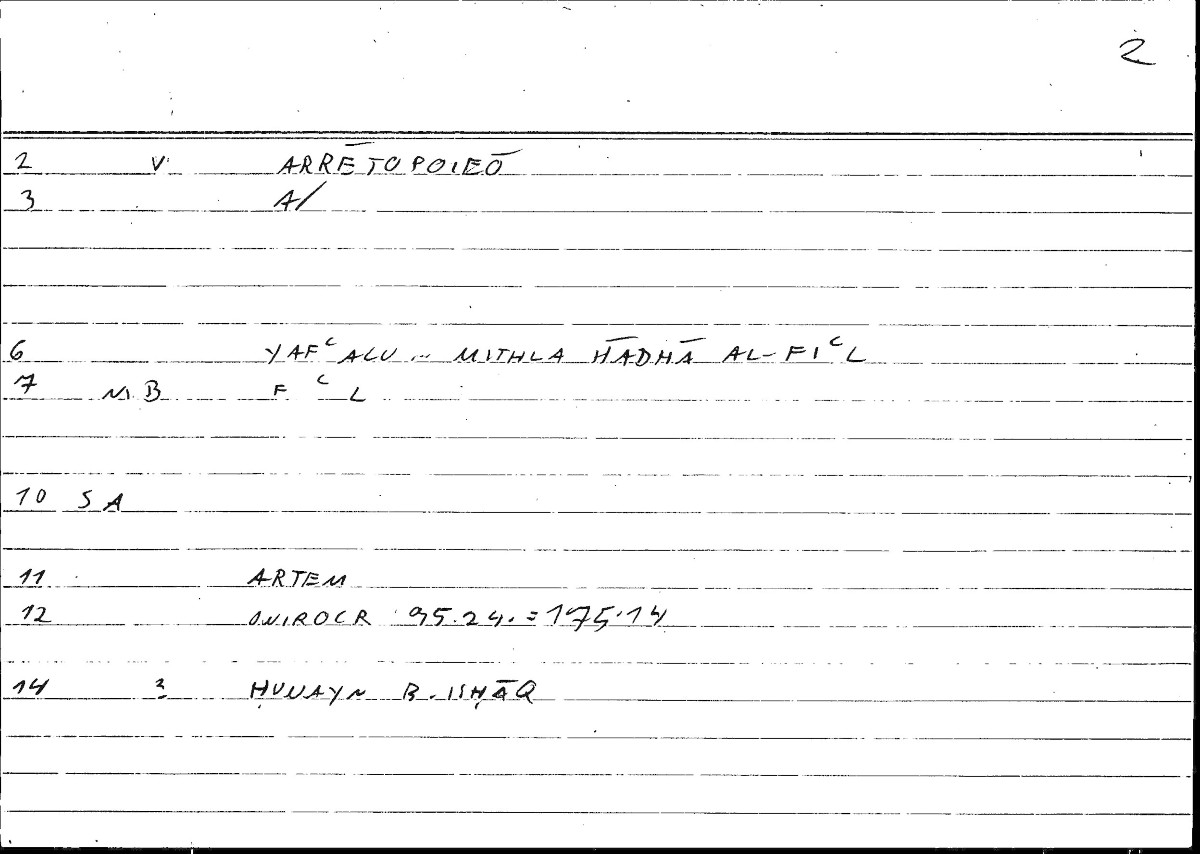 2
2 V ARRĒTOPOIEŌ
3 A/
6 YAFʿALU .. MITHLA HĀDHĀ AL-FIʿL
7 MB F ʿ L
10 SA
11 ARTEM
12 ONIROCR 95.24.=175.14
14 ? ḤUNAYN B. ISḤĀQ